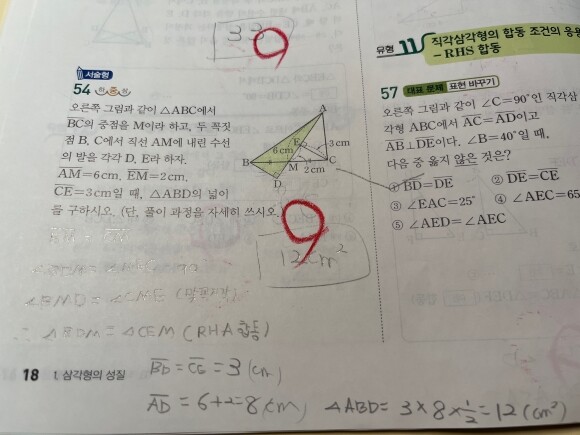 33
유형 11 직각삼각형의 합동 조건의 응용
- RHS 합동
서술형
54 하 중 상
오른쪽 그림과 같이 △ABC에서
BC의 중점을 M이라 하고, 두 꼭짓
점 B, C에서 직선 AM에 내린 수선
의 발을 각각 D, E라 하자.
AM=6cm, EM=2cm,
CE=3cm일 때, △ABD의 넓이
를 구하시오. (단, 풀이 과정을 자세히 쓰시오.)
A
E
3cm
6cm
B
M
C
2cm
D
12cm²
∠BMD = ∠CME (맞꼭지각)
∴ △BDM ≡ △CEM (RHA 합동)
BD = CE = 3 (cm)
AD = 6+2=8 (cm) △ABD= 3×8×½=12 (cm²)
18 Ⅰ. 삼각형의 성질
57 대표 문제 표현 바꾸기
오른쪽 그림과 같이 ∠C=90°인 직각삼
각형 ABC에서 AC=AD이고
AB⊥DE이다. ∠B=40°일 때,
다음 중 옳지 않은 것은?
① BD=DE ② DE=CE
③ ∠EAC=25° ④ ∠AEC=65
⑤ ∠AED=∠AEC